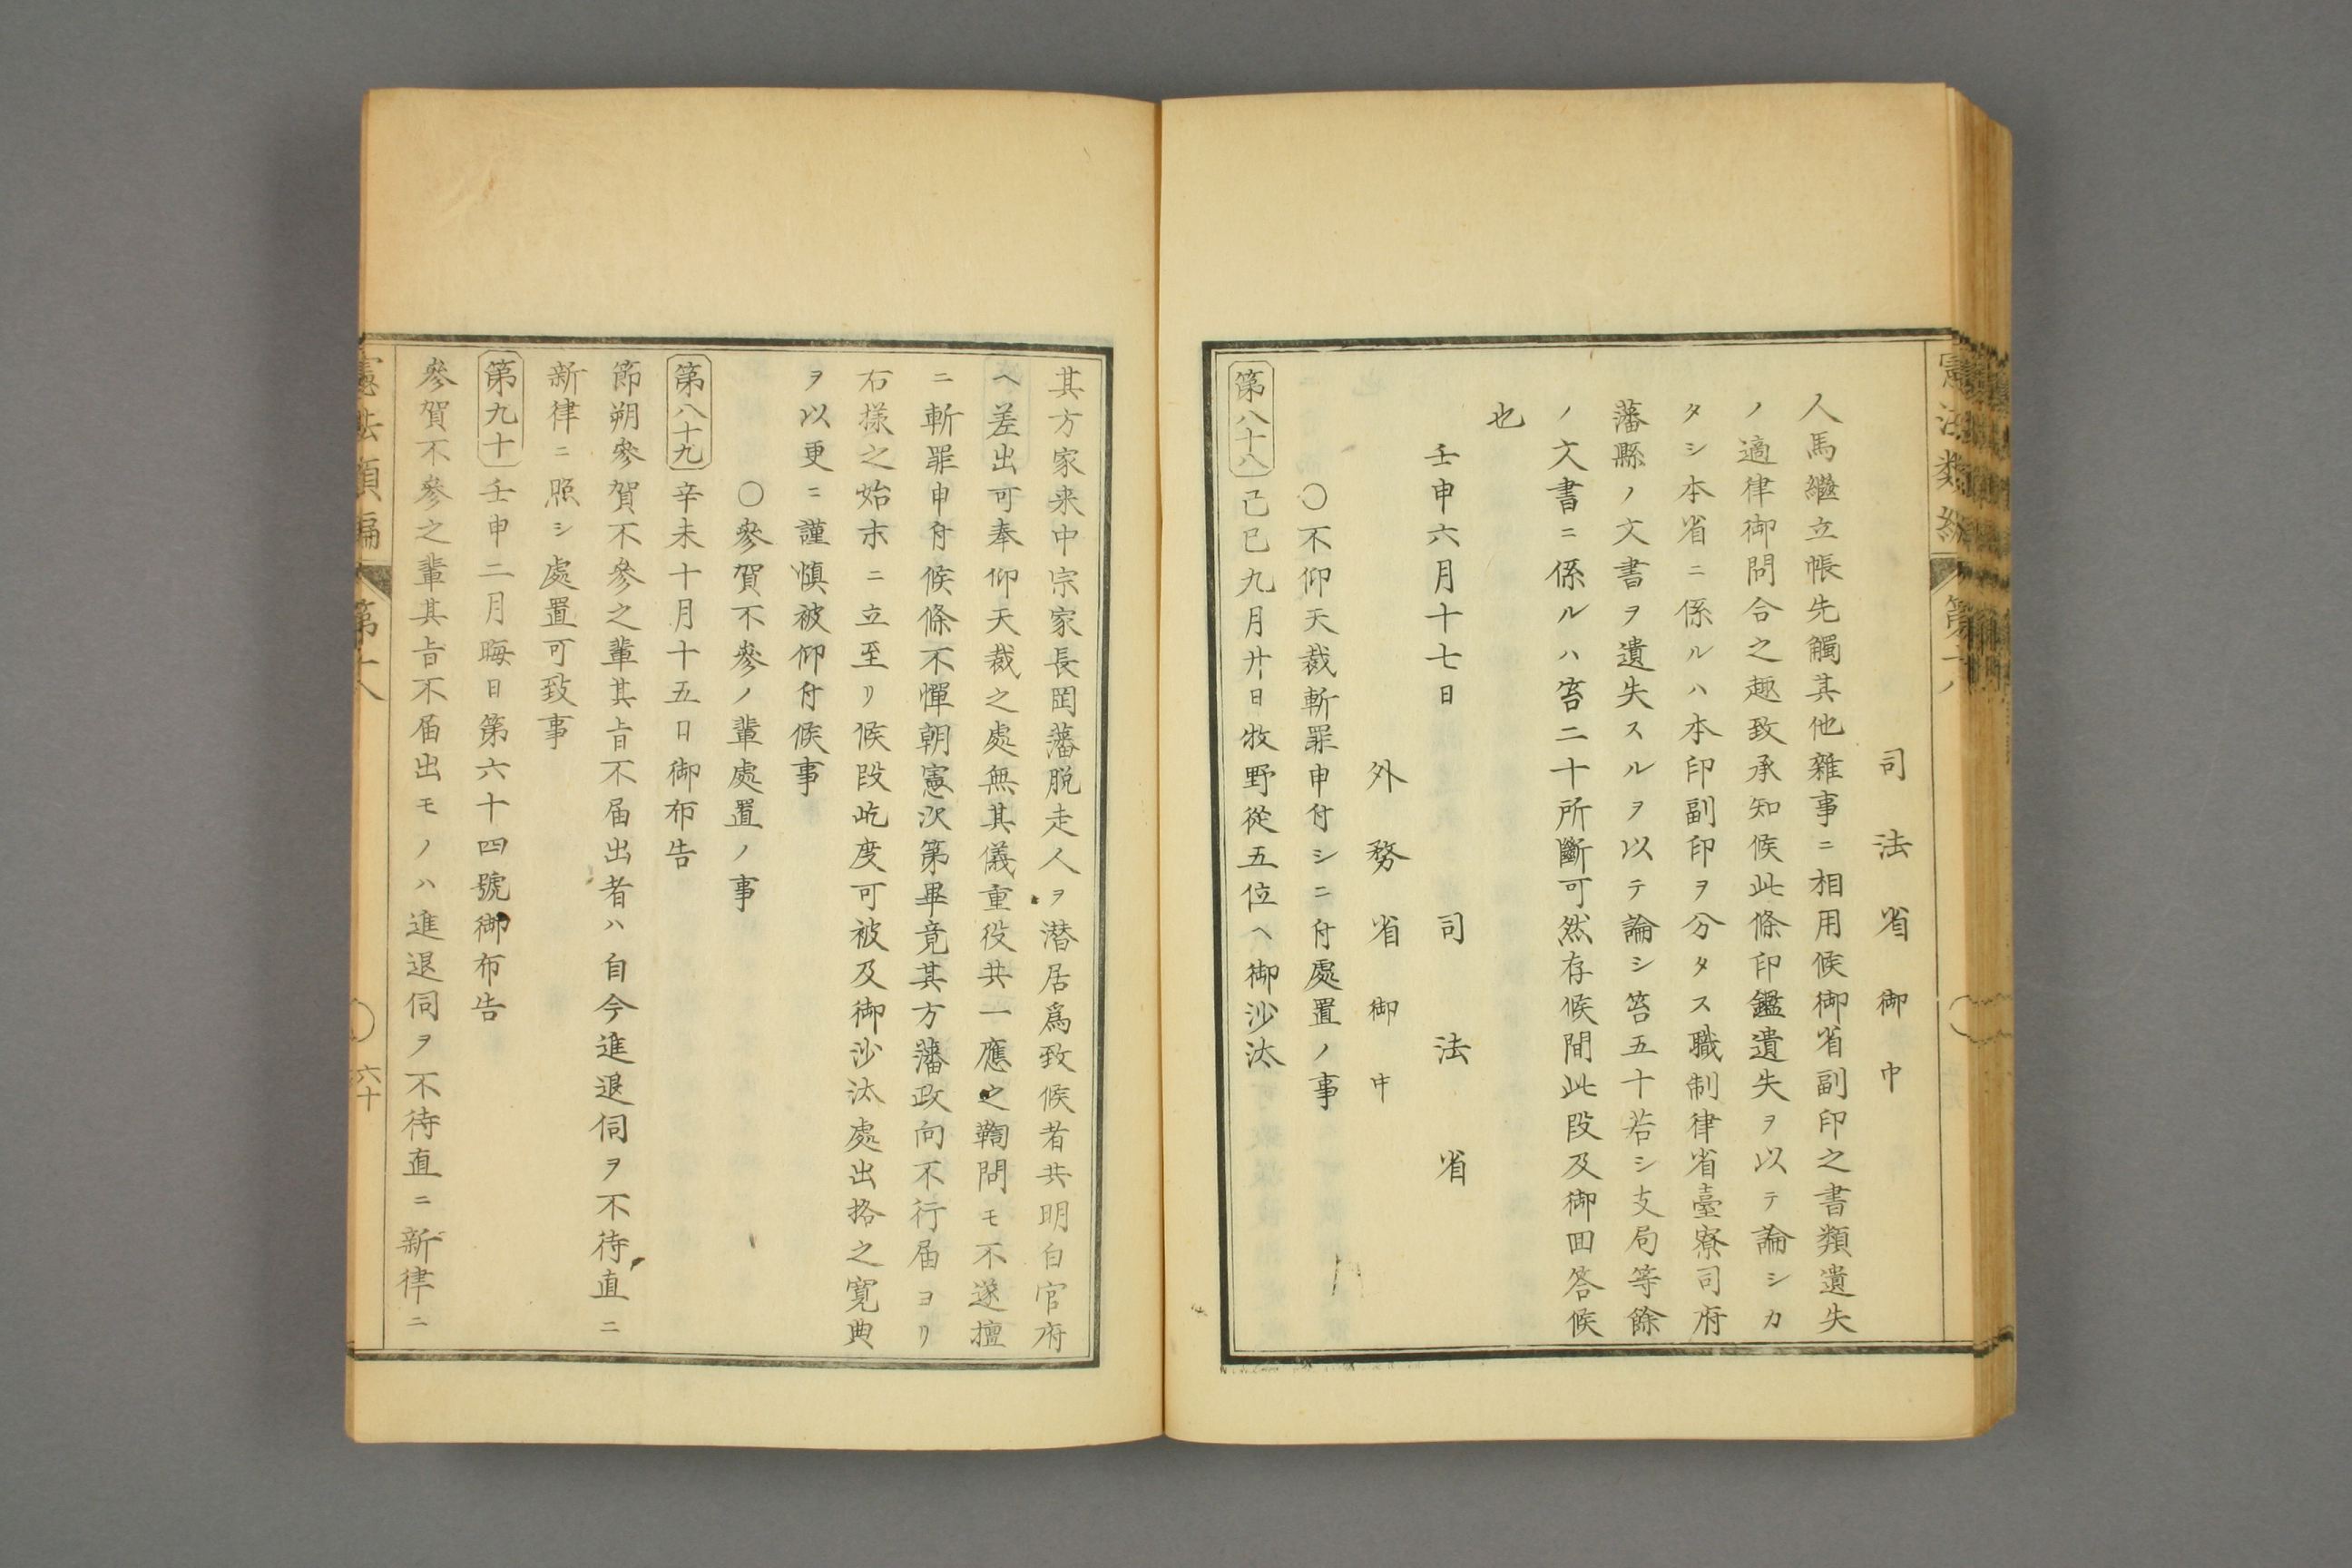 憲法類編 第十八
司法省御中
人馬繼立帳先觸其他雜事ニ相用候御省副印之書類遺失
ノ適律御問合之趣致承知候此條印鑑遺失ヲ以テ論シカ
タシ本省ニ係ルハ本印副印ヲ分タス職制律省臺寮司府
藩縣ノ文書ヲ遺失スルヲ以テ論シ笞五十若シ支局等餘
ノ文書ニ係ルハ笞二十所斷可然存候間此段及御回答候
也
壬申六月十七日
司法省
外務省御中
○不仰天裁斬罪申付シニ付處置ノ事
第八十八 己巳九月廿日牧野從五位ヘ御沙汰
其方家来中宗家長岡藩脱走人ヲ潜居爲致候者共明白官府
ヘ差出可奉仰天裁之處無其儀重役共一應之鞫問モ不遂擅
ニ斬罪申付候條不憚朝憲次第畢竟其方藩政向不行届ヨリ
右樣之始末ニ立至リ候段屹度可被及御沙汰處出格之寛典
ヲ以更ニ謹愼被仰付候事
○參賀不參ノ輩處置ノ事
第八十九 辛未十月十五日御布告
節朔參賀不參之輩其旨不届出者ハ自今進退伺ヲ不待直ニ
新律ニ照シ處置可致事
第九十 壬申二月晦日第六十四號御布告
參賀不參之輩其旨不届出モノハ進退伺ヲ不待直ニ新律ニ
憲法類編 第十八 ○ 六十